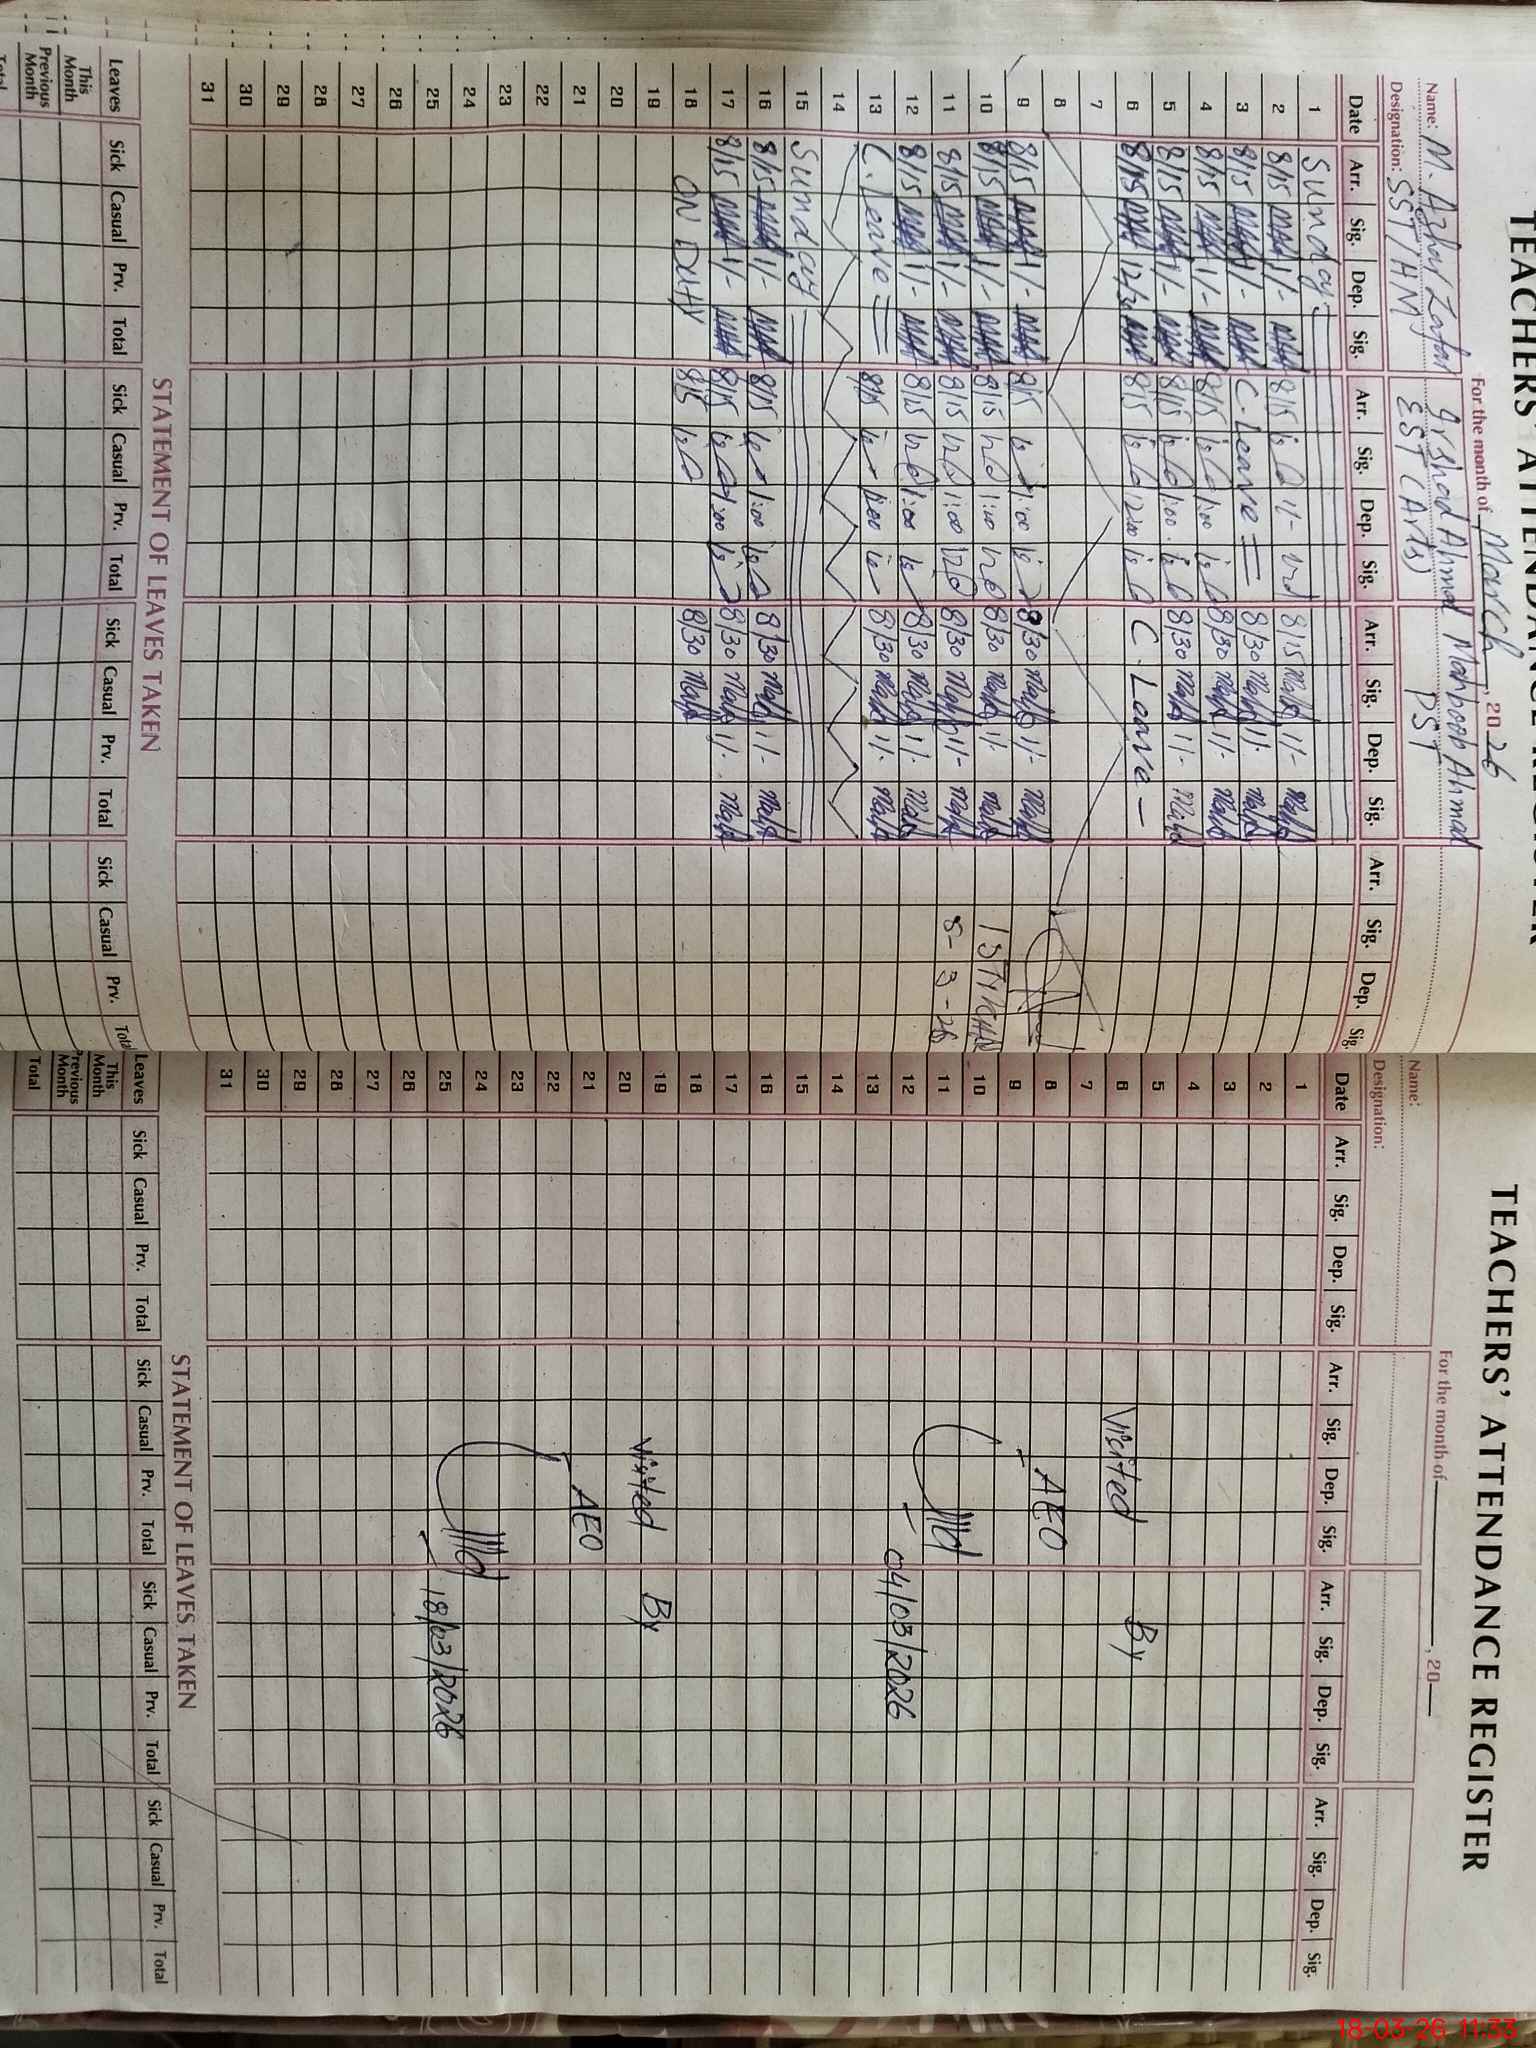 TEACHERS' ATTENDANCE REGISTER
For the month of March, 2026
Name: M. Azhar Zafar Irshad Ahmad Mahboob Ahmad
Designation: SST/HM EST (Arts) PST
Date Arr. Sig. Dep. Sig. Arr. Sig. Dep. Sig. Arr. Sig. Dep. Sig. Arr. Sig. Dep. Sig.
1 Sunday
2 8/15 1/- 8/15 1/- 8/15 1/-
3 8/15 1/- C. Leave 8/30 1/-
4 8/15 1/- 8/15 1:00 8/30 1/-
5 8/15 1/- 8/15 1:00 8/30 1/-
6 8/15 8/15 12:00 C. Leave
7
8
9 8/15 1/- 8/15 1:00 8/30 1/-
10 8/15 1/- 8/15 1:00 8/30 1/-
11 8/15 1/- 8/15 1:00 8/30 1/- 8-3-26
12 8/15 1/- 8/15 1:00 8/30 1/-
13 C. Leave 8/15 8/30 1/-
14
15 Sunday
16 8/15 1/- 8/15 1:00 8/30 1/-
17 8/15 1/- 8/15 1:00 8/30 1/-
18 ON DUTY 8/15 8/30
19
20
21
22
23
24
25
26
27
28
29
30
31
STATEMENT OF LEAVES TAKEN
Leaves Sick Casual Prv. Total Sick Casual Prv. Total Sick Casual Prv. Total Sick Casual Prv. Total
This Month
Previous Month
Total
TEACHERS' ATTENDANCE REGISTER
For the month of , 20
Name:
Designation:
Date Arr. Sig. Dep. Sig. Arr. Sig. Dep. Sig. Arr. Sig. Dep. Sig. Arr. Sig. Dep. Sig.
1
2
3
4
5
6 Visited By
7
8 AEO
9
10
11
12 04/03/2026
13
14
15
16
17
18
19
20 Visited By
21 AEO
22
23
24
25 18/03/2026
26
27
28
29
30
31
STATEMENT OF LEAVES TAKEN
Leaves Sick Casual Prv. Total Sick Casual Prv. Total Sick Casual Prv. Total Sick Casual Prv. Total
This Month
Previous Month
Total
18-03-26 11:33